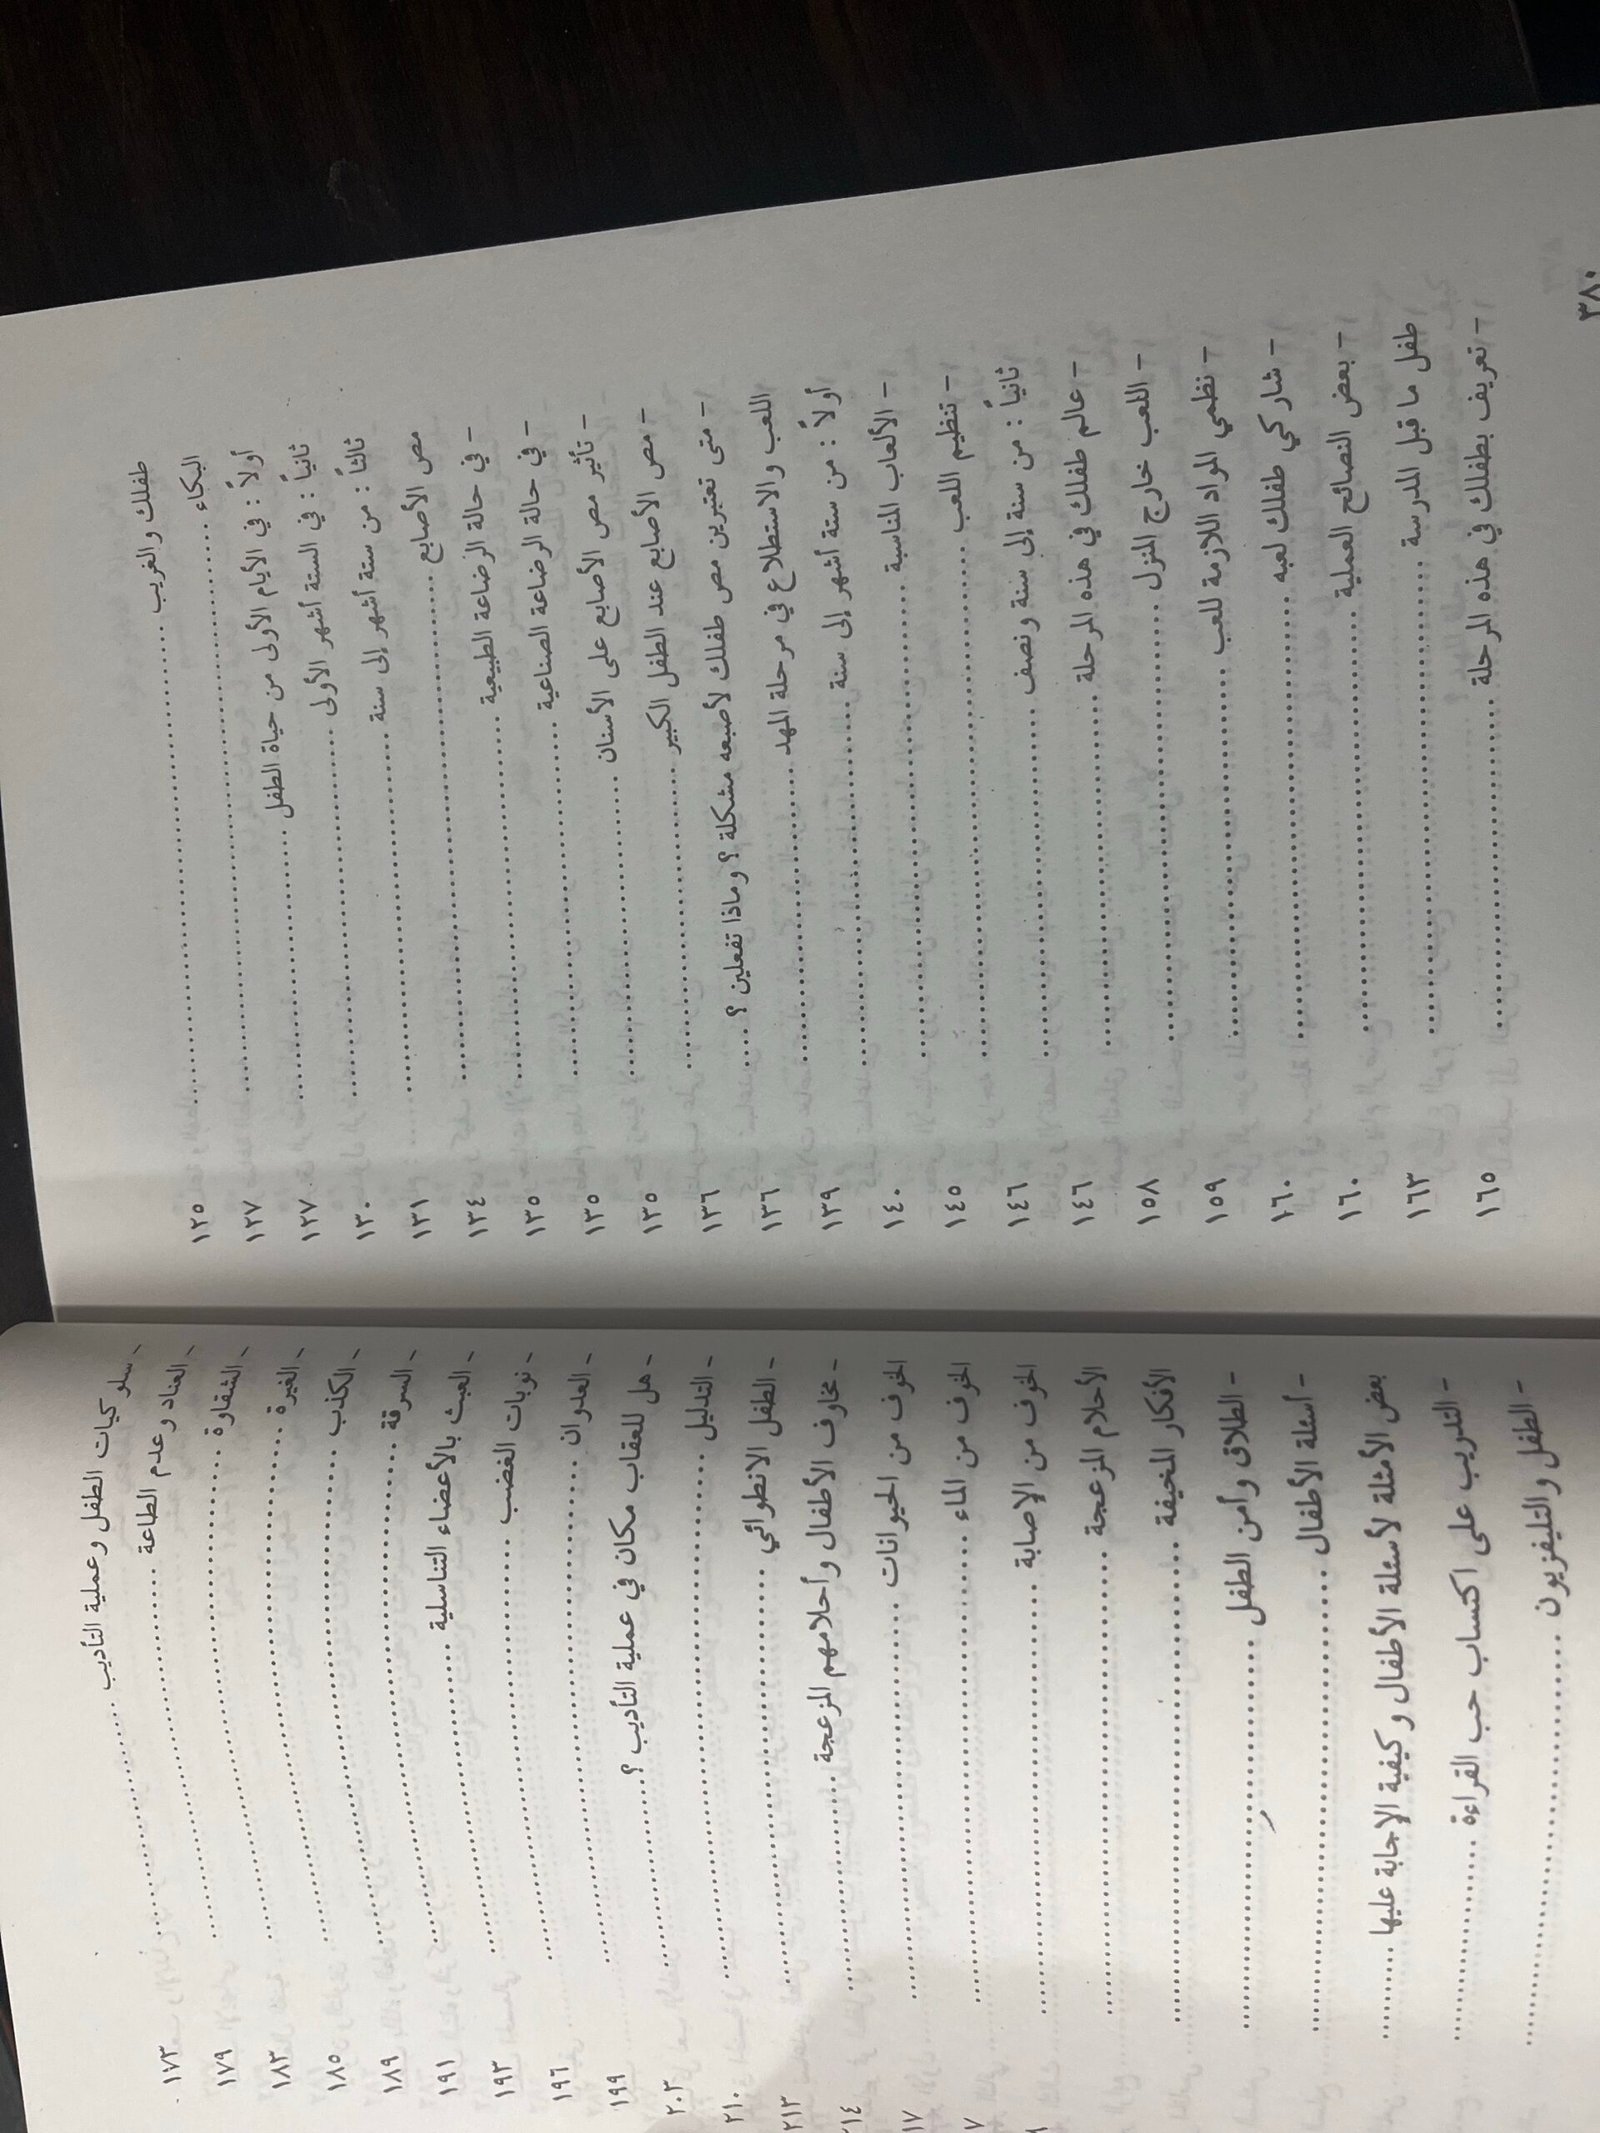 طفلك والغريب ........ ١٢٥
البكاء ........ ١٢٧
أولاً : في الأيام الأولى من حياة الطفل ........ ١٢٧
ثانياً : في الستة أشهر الأولى ........ ١٣٠
ثالثاً : من ستة أشهر إلى سنة ........ ١٣١
مص الأصابع ........ ١٣٤
- في حالة الرضاعة الطبيعية ........ ١٣٥
- في حالة الرضاعة الصناعية ........ ١٣٥
- تأثير مص الأصابع على الأسنان ........ ١٣٥
- مص الأصابع عند الطفل الكبير ........ ١٣٦
- متى تعتبرين مص طفلك لأصبعه مشكلة ؟ وماذا تفعلين ؟ ........ ١٣٦
اللعب والاستطلاع في مرحلة المهد ........ ١٣٩
أولاً : من ستة أشهر إلى سنة ........ ١٤٠
- الألعاب المناسبة ........ ١٤٥
- تنظيم اللعب ........ ١٤٦
ثانياً : من سنة إلى سنة ونصف ........ ١٤٦
- عالم طفلك في هذه المرحلة ........ ١٥٨
- اللعب خارج المنزل ........ ١٥٩
- نظمي المواد اللازمة للعب ........ ١٦٠
- شاركي طفلك لعبه ........ ١٦٠
- بعض النصائح العملية ........ ١٦٣
طفل ما قبل المدرسة ........ ١٦٥
- تعريف بطفلك في هذه المرحلة ........
٣٨٠
- سلوكيات الطفل وعملية التأديب ........ ١٧٣
- العناد وعدم الطاعة ........ ١٧٩
- الشقاوة ........ ١٨٣
- الغيرة ........ ١٨٥
- الكذب ........ ١٨٩
- السرقة ........ ١٩١
- العبث بالأعضاء التناسلية ........ ١٩٣
- نوبات الغضب ........ ١٩٦
- العدوان ........ ١٩٩
- هل للعقاب مكان في عملية التأديب ؟ ........ ٢٠٣
- التدليل ........ ٢١٠
- الطفل الانطوائي ........ ٢١٣
- مخاوف الأطفال وأحلامهم المزعجة ........ ٢١٤
الخوف من الحيوانات ........
الخوف من الماء ........
الخوف من الإصابة ........
الأحلام المزعجة ........
الأفكار المخيفة ........
- الطلاق وأمن الطفل ........
- أسئلة الأطفال ........
بعض الأمثلة لأسئلة الأطفال وكيفية الإجابة عليها ........
- التدريب على اكتساب حب القراءة ........
- الطفل والتليفزيون ........